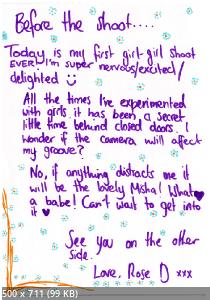 Before the shoot....
Today is my first girl-girl shoot
EVER. I'm super nervous/excited/
delighted
All the times I've experimented
with girls it has been a secret
little time behind closed doors. I
wonder if the camera will affect
my groove?
No, if anything distracts me it
will be the lovely Misha! What
a babe! Can't wait to get into
it
See you on the other
side.
Love, Rose D xxx
500 x 711 (99 KB)